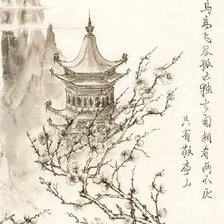 鸟高飞尽孤云独去闲相看两不厌
只有敬亭山